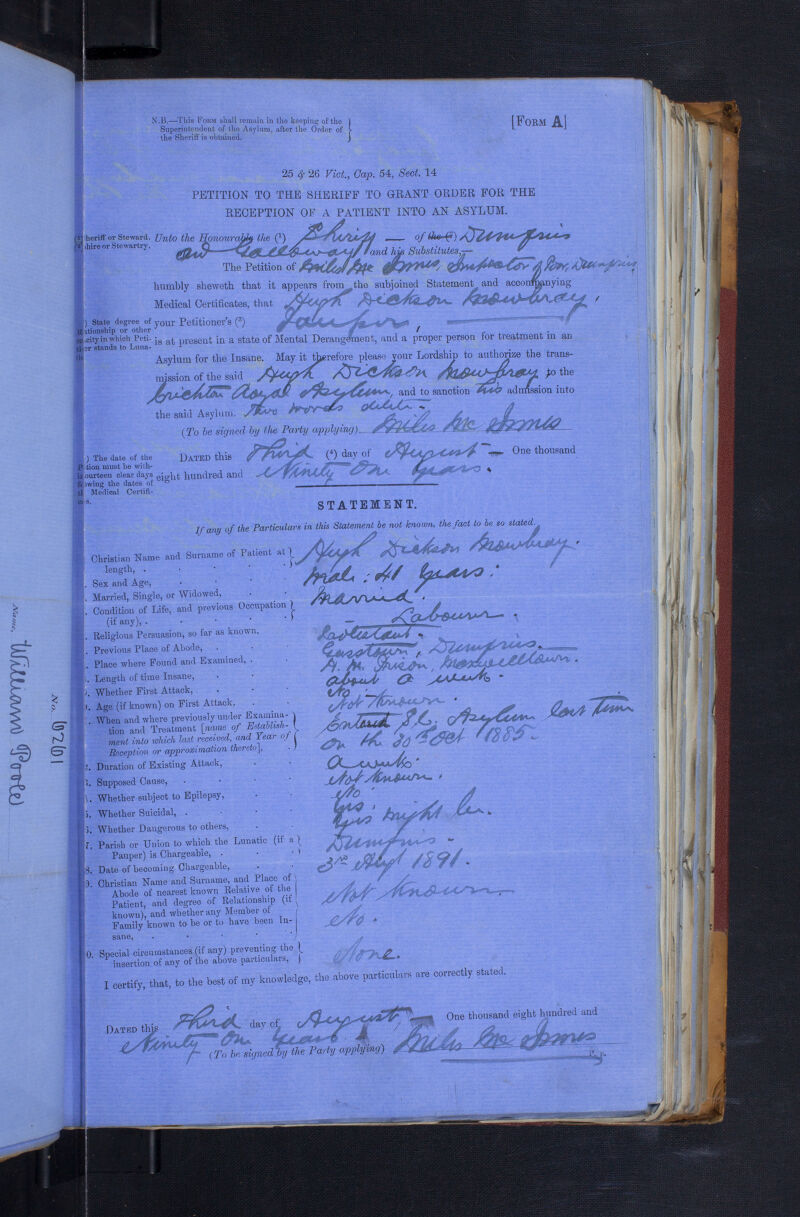 N.B.—This Form shall remain in the keeping of the
Superintendent of the Asylum, after the Order of
the Sheriff is obtained.
[FORM A]
25 & 26 Vict., Cap. 54, Sect. 14
PETITION TO THE SHERIFF TO GRANT ORDER FOR THE
RECEPTION OF A PATIENT INTO AN ASYLUM.
Sheriff or Steward.
Shire or Stewartry.
Unto the Honourable the (1) Sheriff — of the (2) Dumfries
and Galloway and his Substitutes,—
The Petition of Miles Mc Innes, Inspector of Poor, Dumfries
humbly sheweth that it appears from the subjoined Statement and accompanying
Medical Certificates, that Hugh Dickson Mowbray,
(3) State degree of
Relationship or other
capacity in which Peti-
tioner stands to Luna-
tic
your Petitioner's (3) Pauper,
is at present in a state of Mental Derangement, and a proper person for treatment in an
Asylum for the Insane. May it therefore please your Lordship to authorize the trans-
mission of the said Hugh Dickson Mowbray to the
Crichton Royal Asylum, and to sanction his admission into
the said Asylum. Two words delete.
(To be signed by the Party applying). Miles Mc Innes
(4) The date of the
Petition must be with-
in fourteen clear days
following the dates of
the Medical Certifi-
cates.
DATED this Third (4) day of August — One thousand
eight hundred and Ninety One years.
STATEMENT.
If any of the Particulars in this Statement be not known, the fact to be so stated.
Christian Name and Surname of Patient at length, . Hugh Dickson Mowbray.
. Sex and Age, Male: 41 Years:
. Married, Single, or Widowed, Married.
. Condition of Life, and previous Occupation (if any), . Labourer.
. Religious Persuasion, so far as known, Protestant.
. Previous Place of Abode, . Gasstown, Dumfries.
. Place where Found and Examined, . H. M. Prison, Maxwelltown.
. Length of time Insane, about a week.
. Whether First Attack, No
. Age (if known) on First Attack, Not known.
. When and where previously under Examina-
tion and Treatment [name of Establish-
ment into which last received, and Year of
Reception or approximation thereto],
Entered S.C. Asylum last time
on the 30th Oct 1885.
2. Duration of Existing Attack, A week.
3. Supposed Cause, Not known.
. Whether subject to Epilepsy, No
5. Whether Suicidal, . Yes.
6. Whether Dangerous to others, Yes might be.
7. Parish or Union to which the Lunatic (if a
Pauper) is Chargeable, . Dumfries.
8. Date of becoming Chargeable, 3rd Augt 1891.
9. Christian Name and Surname, and Place of
Abode of nearest known Relative of the
Patient, and degree of Relationship (if
known), and whether any Member of
Family known to be or to have been In-
sane,
Not known.
No.
0. Special circumstances (if any) preventing the
insertion of any of the above particulars, None.
I certify, that, to the best of my knowledge, the above particulars are correctly stated.
DATED this Third day of August, — One thousand eight hundred and
Ninety One years
(To be signed by the Party applying) Miles Mc Innes
Name, William Poole
No. 6261